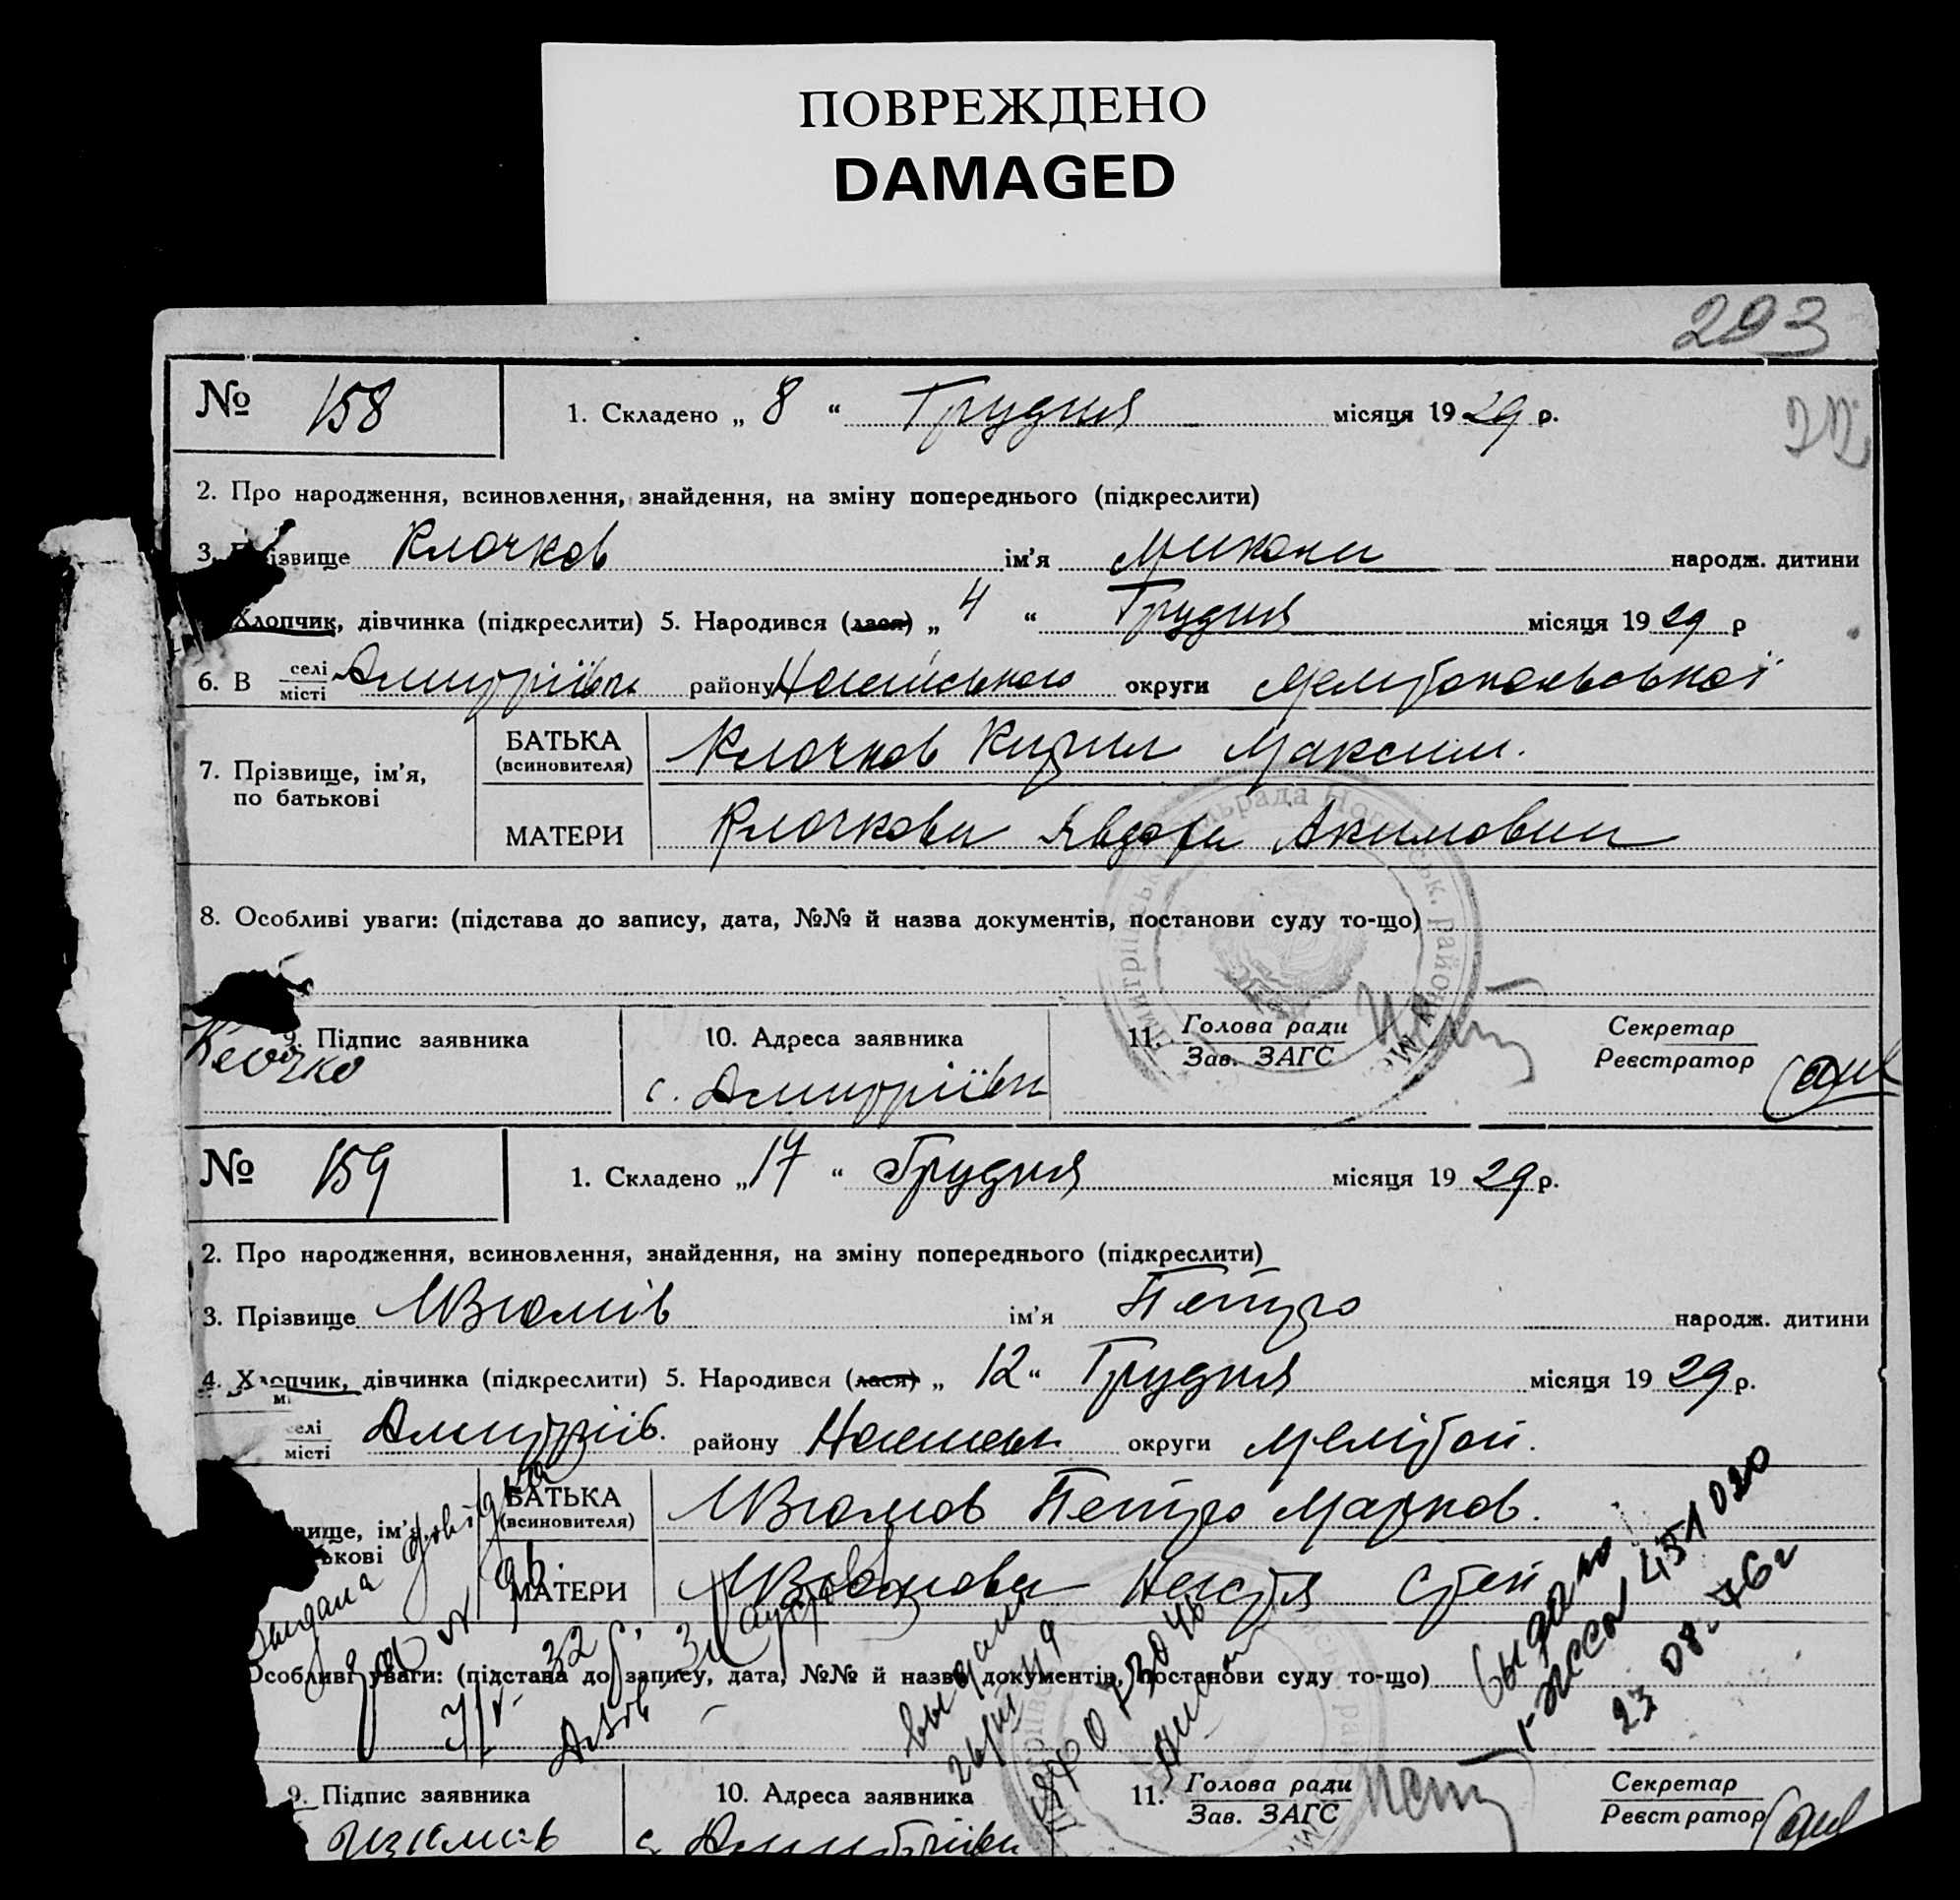 ПОВРЕЖДЕНО
DAMAGED
293
№ 158
1. Складено „ 8 “ Грудня місяця 1929 р.
2. Про народження, всиновлення, знайдення, на зміну попереднього (підкреслити)
3. Прізвище Клочков ім'я Микола народж. дитини
Хлопчик, дівчинка (підкреслити) 5. Народився (лася) „ 4 “ Грудня місяця 1929 р
6. В селі місті Дмитрівка району округи Мелітопольської
7. Прізвище, ім'я, по батькові
БАТЬКА (всиновителя) Клочков Кирил Максим.
МАТЕРИ Клочкова Явдоха Акимовна
8. Особливі уваги: (підстава до запису, дата, №№ й назва документів, постанови суду то-що)
9. Підпис заявника
Клочко
10. Адреса заявника
с. Дмитрівка
11. Голова ради
Зав. ЗАГС
Секретар
Реєстратор
№ 159
1. Складено „ 17 “ Грудня місяця 1929 р.
2. Про народження, всиновлення, знайдення, на зміну попереднього (підкреслити)
3. Прізвище Ізюмів ім'я Петро народж. дитини
4. Хлопчик, дівчинка (підкреслити) 5. Народився (лася) „ 12 “ Грудня місяця 1929 р.
селі місті Дмитрів. району округи Мелітоп.
вище, ім'я, ькові
БАТЬКА (всиновителя) Ізюмов Петро Марков.
МАТЕРИ Ізюмова Настя Степ
видана довідка
Особливі уваги: (підстава до запису, дата, №№ й назва документів, постанови суду то-що)
выдано
451020
23 08. 76г
9. Підпис заявника
Ізюмів
10. Адреса заявника
с. Дмитрівка
11. Голова ради
Зав. ЗАГС
Секретар
Реєстратор